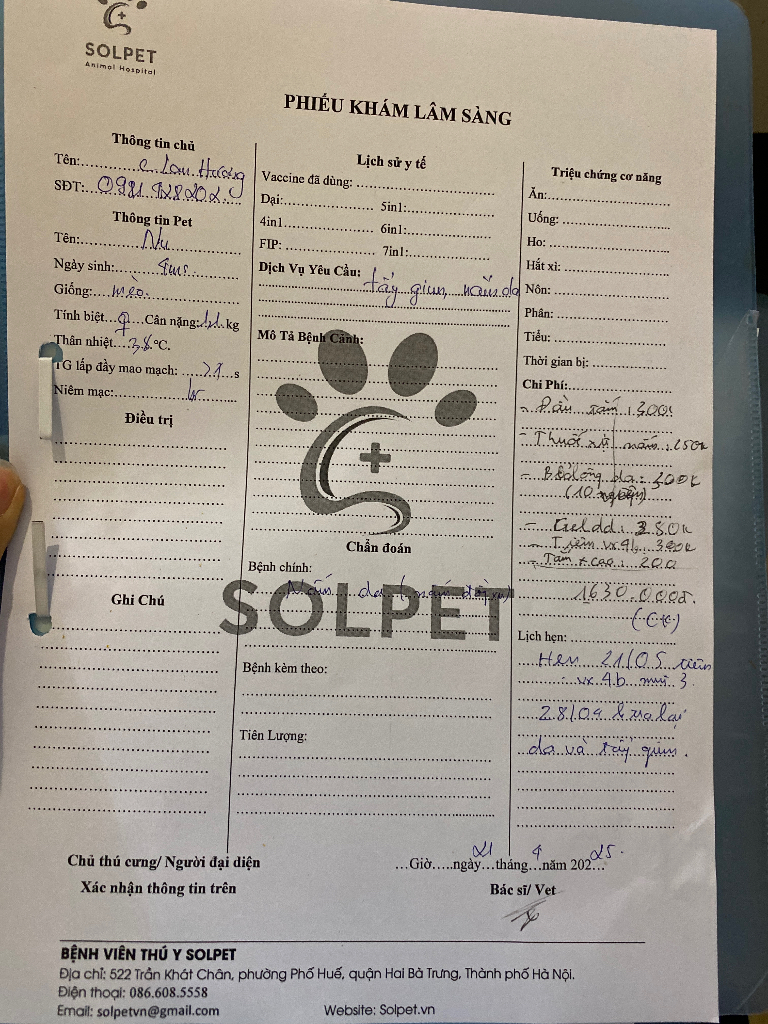 SOLPET
Animal Hospital
PHIẾU KHÁM LÂM SÀNG
Thông tin chủ
Tên: c Lan Hương
SĐT: 0981 928202
Thông tin Pet
Tên: Nu
Ngày sinh: 4ms
Giống: mèo.
Tính biệt ♀ Cân nặng: kg
Thân nhiệt 38 °C.
TG lấp đầy mao mạch: >1 s
Niêm mạc:
Điều trị
Ghi Chú
Lịch sử y tế
Vaccine đã dùng:
Dại: 5in1:
4in1 6in1:
FIP: 7in1:
Dịch Vụ Yêu Cầu: tẩy giun, nấm da
Mô Tả Bệnh Cảnh:
Chẩn đoán
Bệnh chính:
Nấm da (nấm
SOLPET
Bệnh kèm theo:
Tiên Lượng:
Triệu chứng cơ năng
Ăn:
Uống:
Ho:
Hắt xì:
Nôn:
Phân:
Tiểu:
Thời gian bị:
Chi Phí:
- tắm : 300k
- Thuốc nấm : 250k
- da : 300k
(10
- Gel dd : 380k
- Tiêm vx 4b 300k
- Tắm + cạo : 200
1630.000đ.
(CK)
Lịch hẹn:
Hẹn 21/05 tiêm
vx 4b mũi 3.
28/04 ktra lại
da và tẩy giun.
Chủ thú cưng/ Người đại diện
Xác nhận thông tin trên
...Giờ.....ngày 21 tháng 4 năm 2025.
Bác sĩ/ Vet
BỆNH VIÊN THÚ Y SOLPET
Địa chỉ: 522 Trần Khát Chân, phường Phố Huế, quận Hai Bà Trưng, Thành phố Hà Nội.
Điện thoại: 086.608.5558
Email: solpetvn@gmail.com Website: Solpet.vn